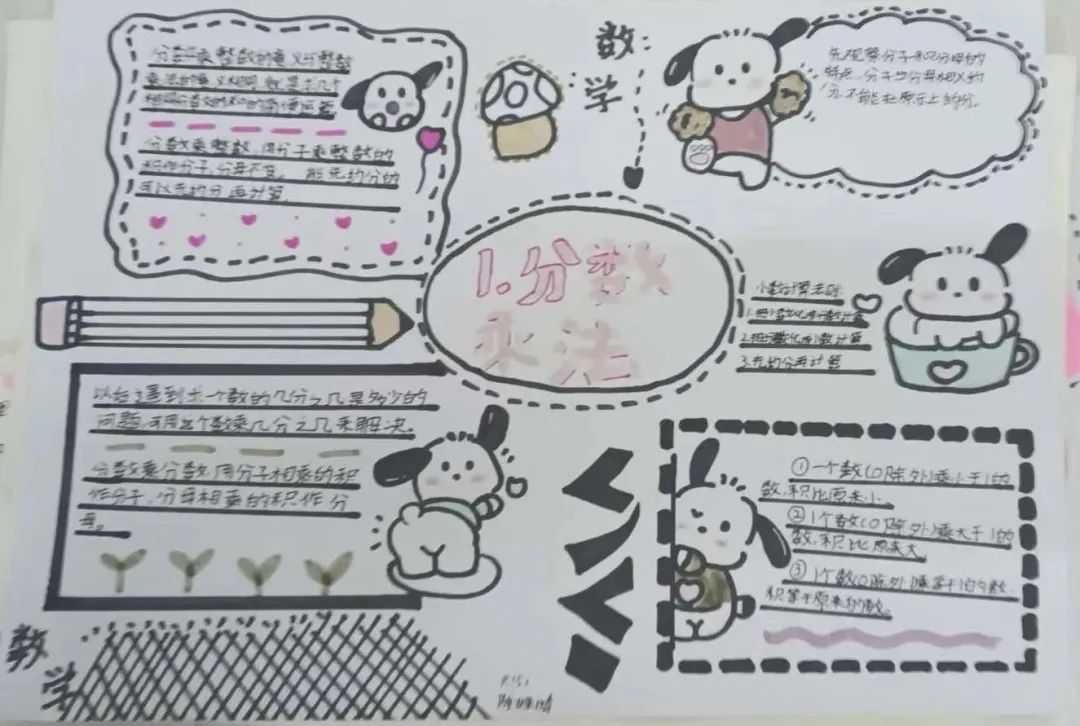 分数乘整数的意义与整数
乘法的意义相同,就是求几个
相同分数的和的简便运算
分数乘整数,用分子乘整数的
积作分子,分母不变。能先约分的
可以先约分再计算.
数:
学
先观察分子和分母的
特点,分子与分母相乘的
分,不能在原示上约分.
1.分数
乘法
小数计算法则:
1.把小数化成分数计算
2.把分数化成小数计算
3.先约分再计算
以后遇到求一个数的几分之几是多少的
问题,可用这个数乘几分之几来解决.
分数乘分数,用分子相乘的积
作分子,分母相乘的积作分
母。
①一个数(0除外)乘小于1的
数,积比原来小。
②1个数(0除外)乘大于1的
数,积比原来大
③1个数(0除外)乘等于1的数,
积等于原来的数。
数
学